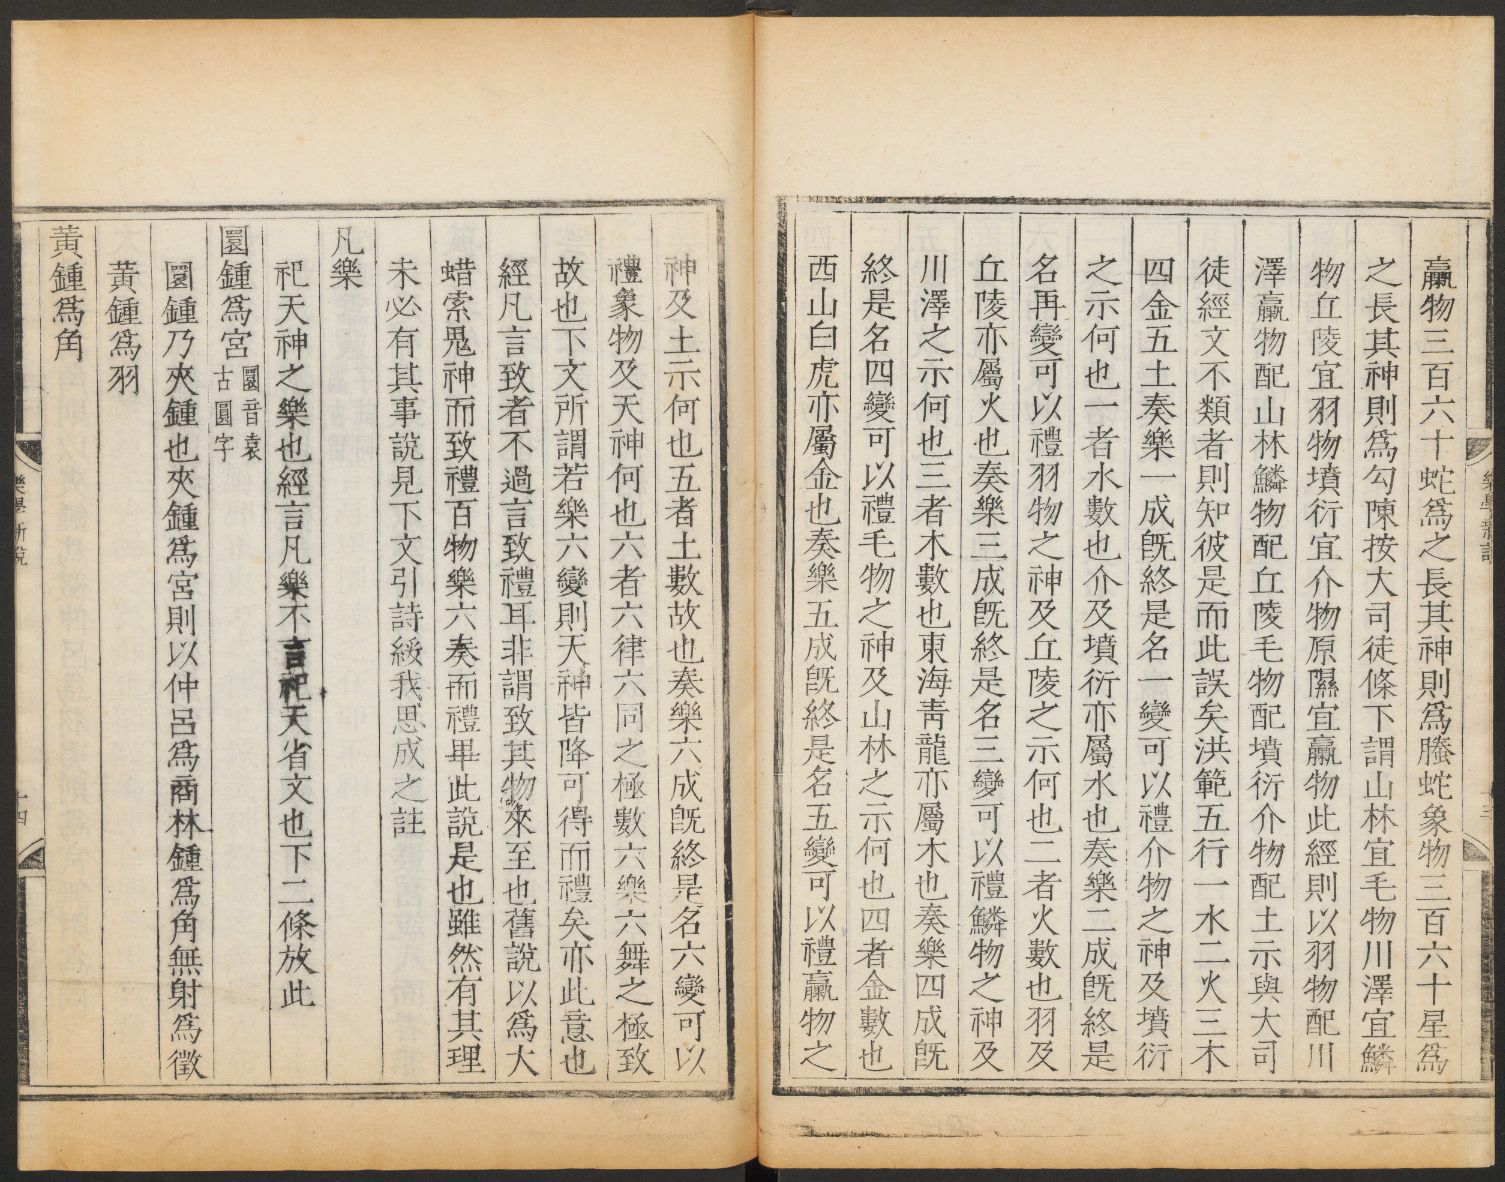 蠃物三百六十蛇爲之長其神則爲螣蛇象物三百六十星爲
之長其神則爲勾陳按大司徒條下謂山林宜毛物川澤宜鱗
物丘陵宜羽物墳衍宜介物原隰宜蠃物此經則以羽物配川
澤蠃物配山林鱗物配丘陵毛物配墳衍介物配土示與大司
徒經文不類者則知彼是而此誤矣洪範五行一水二火三木
四金五土奏樂一成旣終是名一變可以禮介物之神及墳衍
之示何也一者水數也介及墳衍亦屬水也奏樂二成旣終是
名再變可以禮羽物之神及丘陵之示何也二者火數也羽及
丘陵亦屬火也奏樂三成旣終是名三變可以禮鱗物之神及
川澤之示何也三者木數也東海靑龍亦屬木也奏樂四成旣
終是名四變可以禮毛物之神及山林之示何也四者金數也
西山白虎亦屬金也奏樂五成旣終是名五變可以禮蠃物之
神及土示何也五者土數故也奏樂六成旣終是名六變可以
禮象物及天神何也六者六律六同之極數六樂六舞之極致
故也下文所謂若樂六變則天神皆降可得而禮矣亦此意也
經凡言致者不過言致禮耳非謂致其物來至也舊說以爲大
蜡索鬼神而致禮百物樂六奏而禮畢此說是也雖然有其理
未必有其事說見下文引詩綏我思成之註
凡樂
祀天神之樂也經言凡樂不言祀天省文也下二條放此
圜鍾爲宮圜音袁古圓字
圜鍾乃夾鍾也夾鍾爲宮則以仲呂爲商林鍾爲角無射爲徵
黃鍾爲羽
黃鍾爲角
樂學新說
十四